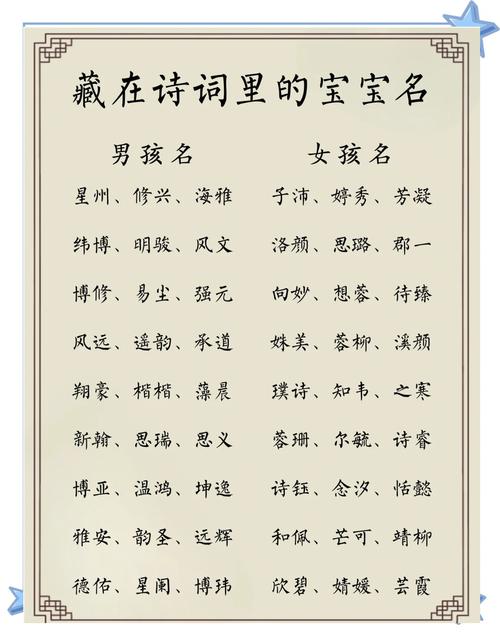 藏在诗词里的宝宝名
男孩名 女孩名
星州、修兴、海雅 子沛、婷秀、芳凝
纬博、明骏、风文 洛颜、思璐、郡一
博修、易尘、强元 向妙、想蓉、待臻
风远、遥韵、承道 姝美、蓉柳、溪颜
翔豪、楷楷、藻晨 璞诗、知韦、之寒
新翰、思瑞、思义 蓉珊、尔毓、诗睿
博亚、温鸿、坤逸 诗钰、念汐、恬懿
雅安、韵圣、远辉 和佩、芒可、靖柳
德佑、星阑、博玮 欣碧、婧媛、芸霞